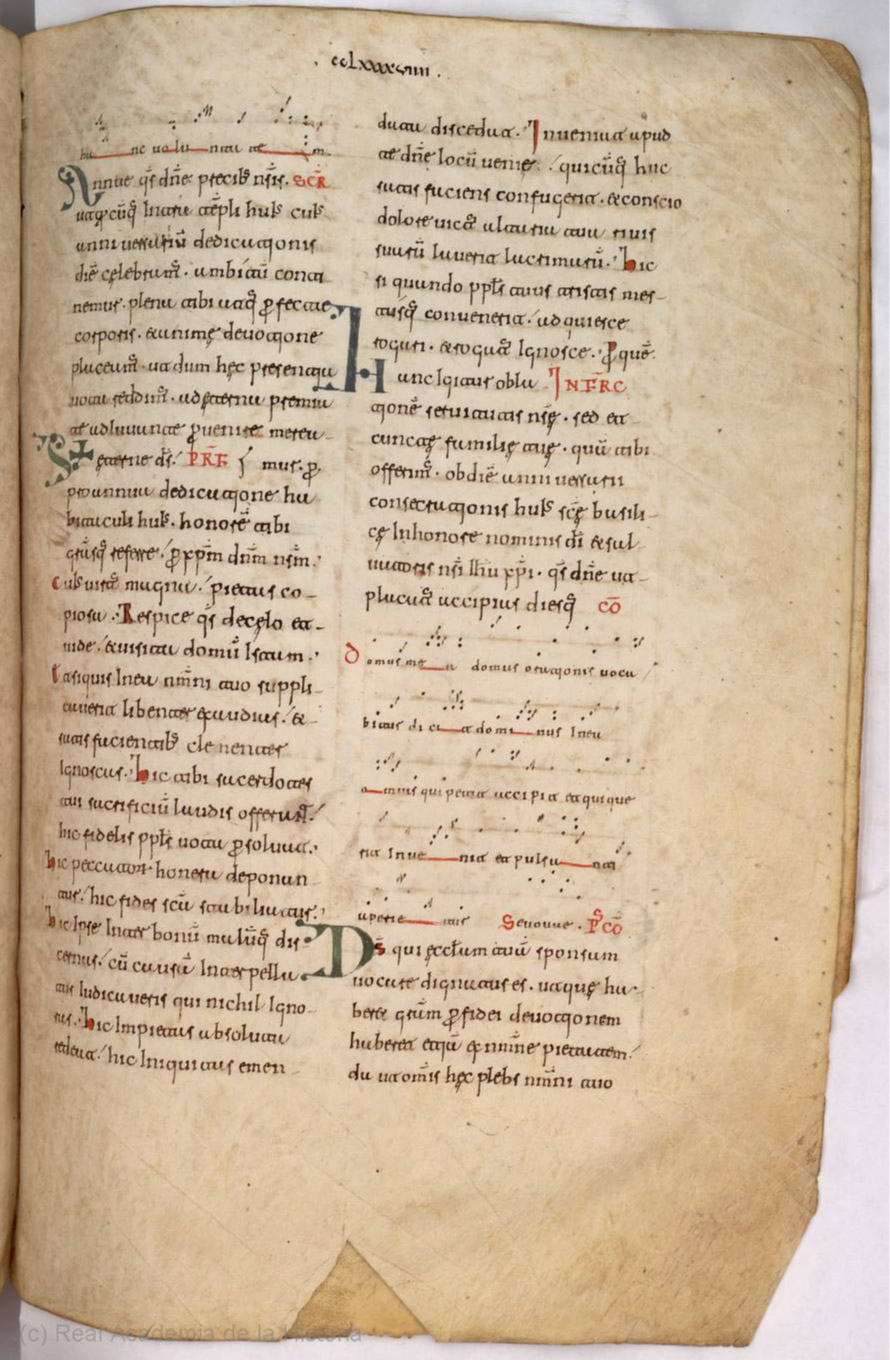 . ccLxxxxviiii .
hu nc uolu ntatẽ m
Annue qs dñe precib nris. SCR
ut quicũq Intra tẽpli huiˢ cuiˢ
anniuersariũ dedicationis
diẽ celebramˢ. ambitũ conti
nemur. plena tibi atq perfecta
corporis. & anime deuotione
placeamˢ. ut dum hec presentia
uota reddimˢ. ad eterna premia
te adiuuante peruenire merea
Et eterne dˢ. PRF mus. p
pro annua dedicatione ta
bernaculi huiˢ. honorẽ tibi
gratiasq referre. p xpm dnm nrm.
Cuiˢ uirtˢ magna. pietas co-
piosa. Respice qs de celo et
uide. & uisita domũ Istam.
ut siquis In ea nomini tuo suppli
cauerit libenter exaudias. &
satisfacientib clementer
Ignoscas. Hic tibi sacerdotes
tui sacrificiũ laudis offerant.
hic fidelis ppls uota persoluat.
hic peccatorũ honera deponan
tur. hic fides scã stabiliatur.
hic Ipse Inter bonũ malũq dis
cernis. cũ causã Interpella
tus Iudicaueris qui nichil Igno
ras. hic Impietas absoluta
redeat. hic Iniquitas emen
data discedat. Inueniat apud
te dñe locũ uenie. quicũq huc
satisfaciens confugerit. & conscio
dolore uictˢ altaria tua riuis
suarũ lauerit lacrimarũ. Hic
si quando ppls tuus tristis mes-
tusq conuenerit. adquiesce
rogari. & rogatˢ Ignosce. Per quẽ.
Hanc Igitur obla INFRC
tionẽ seruitutis nre. sed et
cuncte familie tue. quã tibi
offerimˢ. ob diẽ anniuersarii
consecrationis huiˢ scẽ basili-
ce In honore nominis dñi & sal-
uatoris nri Ihu xpi. qs dñe ut
placatˢ accipias diesq CO
Domus me a domus orationis uoca
bitur dicit domi nus In ea
omnis qui petit accipit et qui que
rit Inue nit et pulsa nti
aperie tur Seuouae. PˢCO
Dˢ qui ecclam tuã sponsam
uocare dignatus es. ut que ha
beret gratiam per fidei deuotionem
haberet etiã ex nomine pietatem.
da ut omis hec plebs nomini tuo